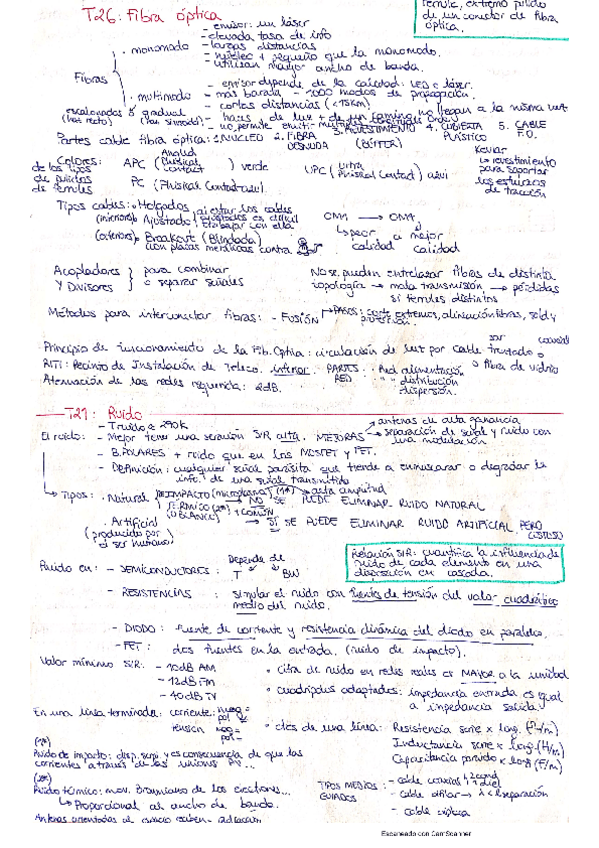 T26: Fibra óptica
férrule, extremo pulido
de un conector de fibra
óptica.
Fibras
. monomodo
- emisor: un láser
- elevada tasa de info
- largas distancias
- núcleo + pequeño que la monomodo.
- utilizan mayor ancho de banda.
. multimodo
- emisor depende de la calidad: LED o láser.
- más barada - > 1000 modos de propagación.
- cortas distancias (<15km)
escalonados o gradual
Partes cable fibra óptica: 1. NÚCLEO 2. FIBRA DESNUDA 3. REVESTIMIENTO (BÚFFER) 4. CUBIERTA PLÁSTICO 5. CABLE F.O.
Kevlar
↳ revestimiento
para soportar
los esfuerzos
de tracción
Colores: de los tipos de pulidos de férrules
APC (Angled Phisical Contact) } verde
UPC (Ultra Phisical Contact) azul
PC (Phisical Contact) azul.
Tipos cables: • Holgados
(interiores) • Ajustado
(exteriores) • Breakout (Blindada)
con placas metálicas contra
OM1 → OM4
↳ peor calidad a mejor calidad
Acopladores
Y Divisores } para combinar
o separar señales
No se pueden entrelazar fibras de distinta
topología → mala transmisión → pérdidas
si férrules distintos
Métodos para interconectar fibras: - FUSIÓN ↳ PASOS: corte extremos, alineación fibras, sold y
protección.
Principio de funcionamiento de la Fib. Optica: circulación de luz por cable trenzado o
coaxial
o fibra de vidrio
RITI: Recinto de Instalación de Teleco. inferior. PARTES RED - Red alimentación
- " " distribución
dispersión.
Atenuación de las redes requerida: 2dB.
T21: Ruido
El ruido:
- T ruido = 290k
- Mejor tener una relación S/R alta. MEJORAS → antenas de alta ganancia
→ separación de señal y ruido con
una modulación
- B.POLARES + ruido que en los MOSFET y FET.
- Definición: cualquier señal parásita que tiende a enmascarar o degradar la
info. de una señal transmitida
↳ Tipos: . Natural } IMPACTO (microplasma) (1*) → alta amplitud
TÉRMICO (2*) + COMÚN
(O BLANCO)
→ NO SE PUEDE ELIMINAR RUIDO NATURAL
. Artificial
(producido por
el ser humano)
→ SI SE PUEDE ELIMINAR RUIDO ARTIFICIAL, PERO
COSTOSO
Relación S/R: cuantifica la influencia de
ruido de cada elemento en una
disposición en cascada.
Ruido en: - SEMICONDUCTORES: Depende de T y BW
- RESISTENCIAS : simular el ruido con fuentes de tensión del valor cuadrático
medio del ruido.
- DIODO: fuente de corriente y resistencia dinámica del diodo en paralelo.
- FET: dos fuentes en la entrada. (ruido de impacto).
Valor mínimo S/R: - 10dB AM
- 12dB FM
- 40dB TV
• cifra de ruido en redes reales es MAYOR a la unidad
• cuadripolos adaptados: impedancia entrada es igual
a impedancia salida
En una línea terminada:
corriente:
tensión
• ctes de una línea: Resistencia serie x long. (Ω/m)
Inductancia serie x long. (H/m)
Capacitancia paralelo x long (F/m)
(1*)
Ruido de impacto: disp. semi y es consecuencia de que las
corrientes a través de las uniones PN...
(2*)
Ruido térmico: mov. Browniano de los electrones...
↳ Proporcional al ancho de banda.
TIPOS MEDIOS GUIADOS:
- cable coaxial
- cable bifilar → λ < separación
- cable óptica
Escaneado con CamScanner